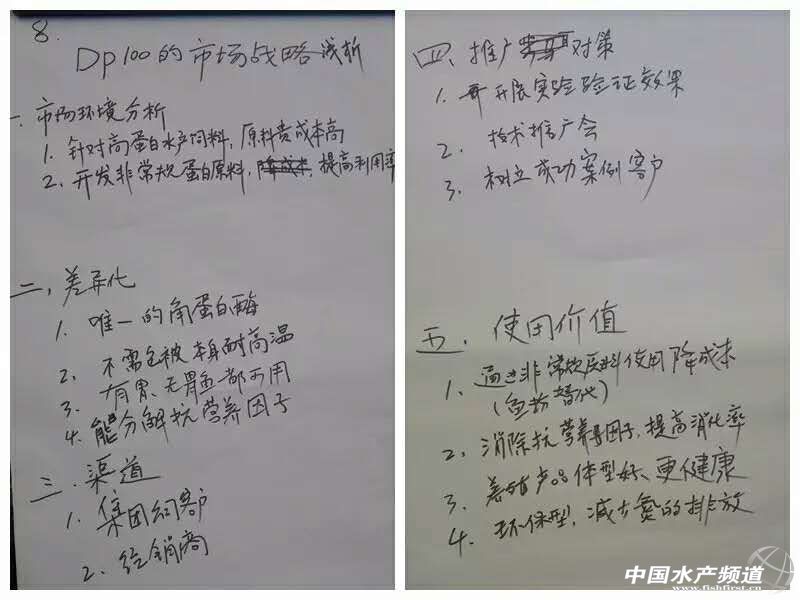 8.
Dp100的市场战略浅析
一、市场环境分析
1. 针对高蛋白水产饲料,原料贵成本高
2、开发非常规蛋白原料,降成本,提高利用率
二,差异化
1. 唯一的角蛋白酶
2、不需包被 本身耐高温
3. 有胃、无胃鱼都可用
4. 能分解抗营养因子
三.渠道
1. 集团约客
2. 经销商
四、推广对策
1. 开展实验验证效果
2. 技术推广会
3. 树立成功案例客户
五、使用价值
1. 通过非常规原料使用降成本
(鱼粉替代)
2、消除抗营养因子,提高消化率
3、养殖产品体型好、更健康
4. 环保型,减少氮的排放
中国水产频道
www.fishfirst.cn